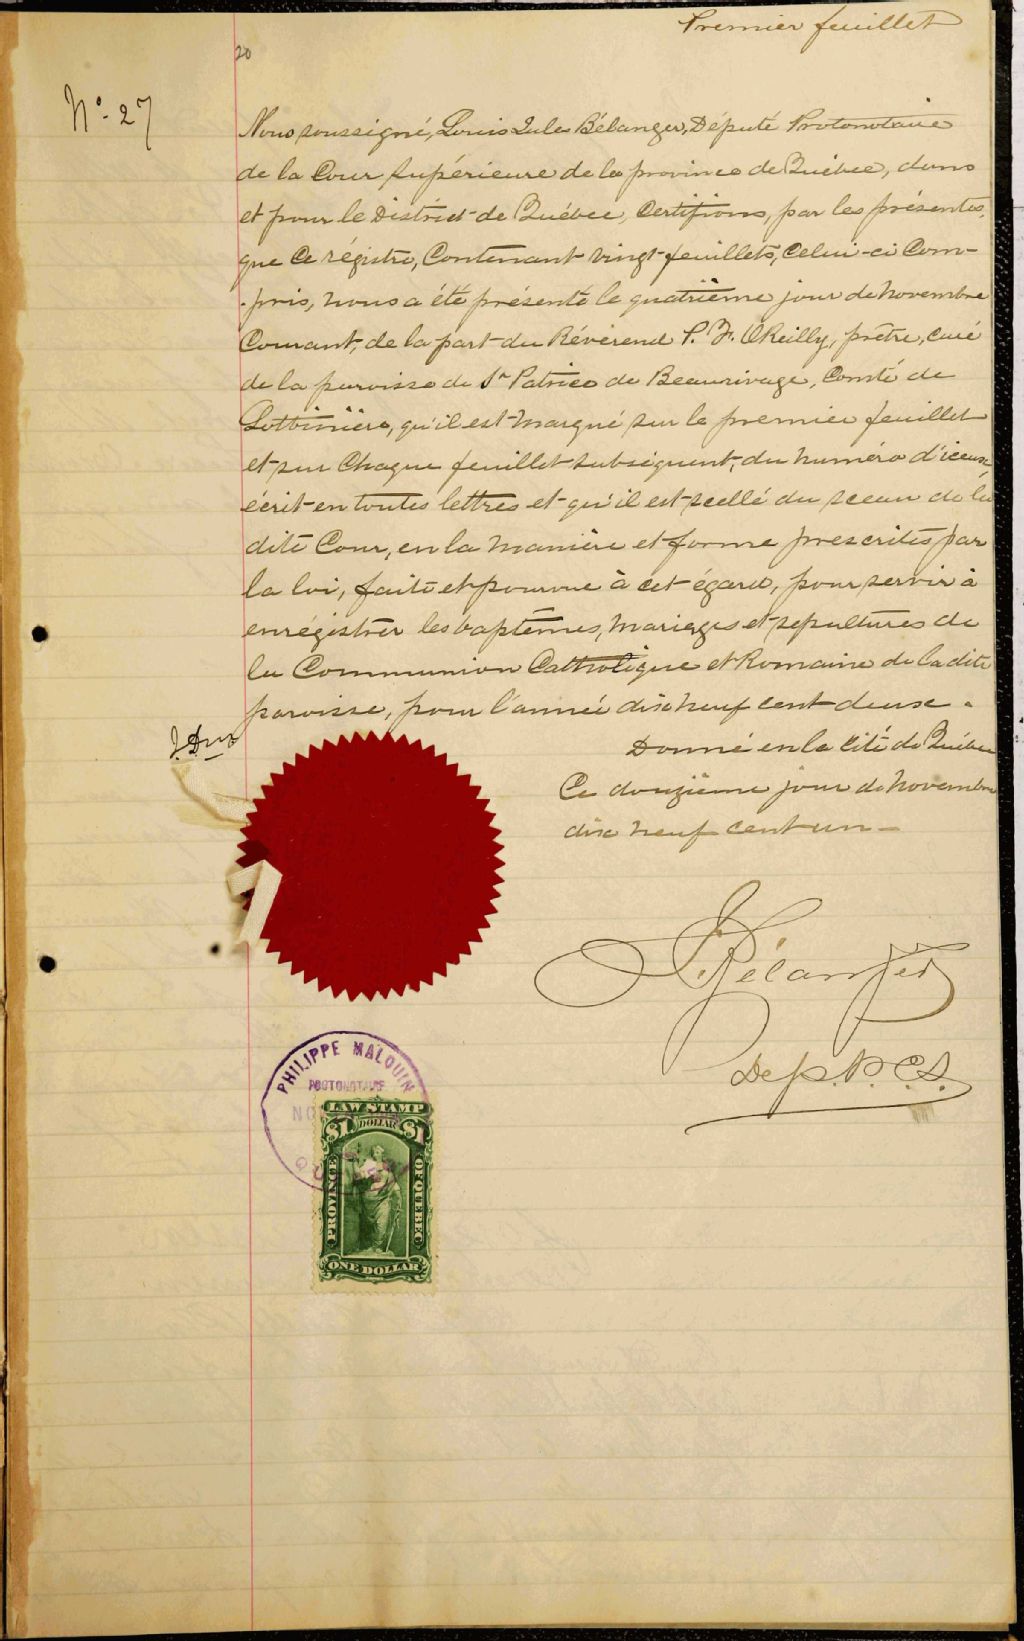 Premier feuillet
20
No. 27
Nous soussigné, Louis Jules Bélanger, Député Protonotaire
de la Cour Supérieure de la province de Québec, dans
et pour le District de Québec, Certifions, par les présentes,
que Ce régistre, Contenant vingt feuillets, Celui-ci Com-
-pris, nous a été présenté le quatrième jour de novembre
Courant, de la part du Révérend P. F. O'Reilly, prêtre, curé
de la paroisse de St Patrice de Beaurivage, Comté de
Lotbinière, qu'il est marqué sur le premier feuillet
et sur Chaque feuillet subséquent, du numéro d'iceux,
écrit en toutes lettres et qu'il est scellé du sceau de la
dite Cour, en la manière et forme prescrites par
la loi, faite et pourvue à cet égard, pour servir à
enrégistrer les baptêmes, mariages et sépultures de
la Communion Catholique et Romaine de la dite
paroisse, pour l'année dix neuf cent deux.
Donné en la Cité de Québec
Ce douzième jour de novembre
dix neuf cent un -
Bélanger
Dep. P. C. S.
PHILIPPE MALOUIN
PROTONOTAIRE
LAW STAMP
$1 DOLLAR $1
PROVINCE OF QUEBEC
ONE DOLLAR